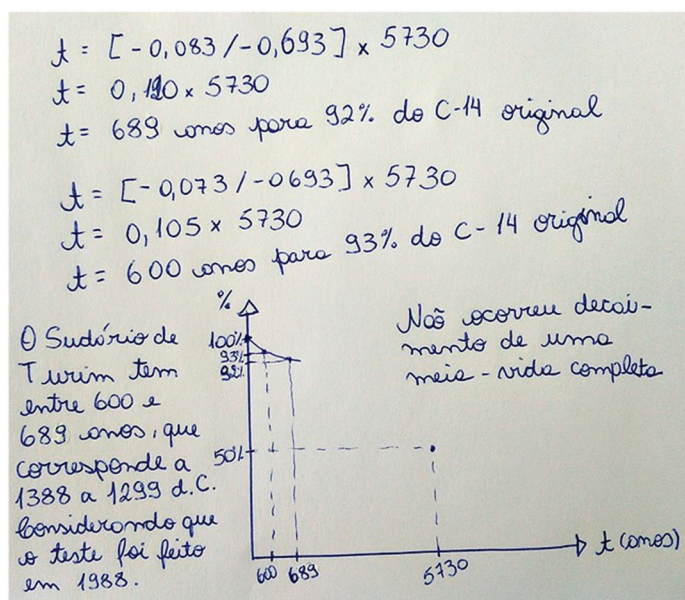 t = [-0,083 / -0,693] x 5730
t = 0,120 x 5730
t = 689 anos para 92% do C-14 original
t = [-0,073 / -0693] x 5730
t = 0,105 x 5730
t = 600 anos para 93% do C-14 original
O Sudório de
Turim tem
entre 600 e
689 anos, que
corresponde a
1388 a 1299 d.C.
Considerando que
o teste foi feito
em 1988.
%
100%
93%
92%
50%
600 689 5730
t (anos)
Naõ ocorreu decai-
mento de uma
meia-vida completa